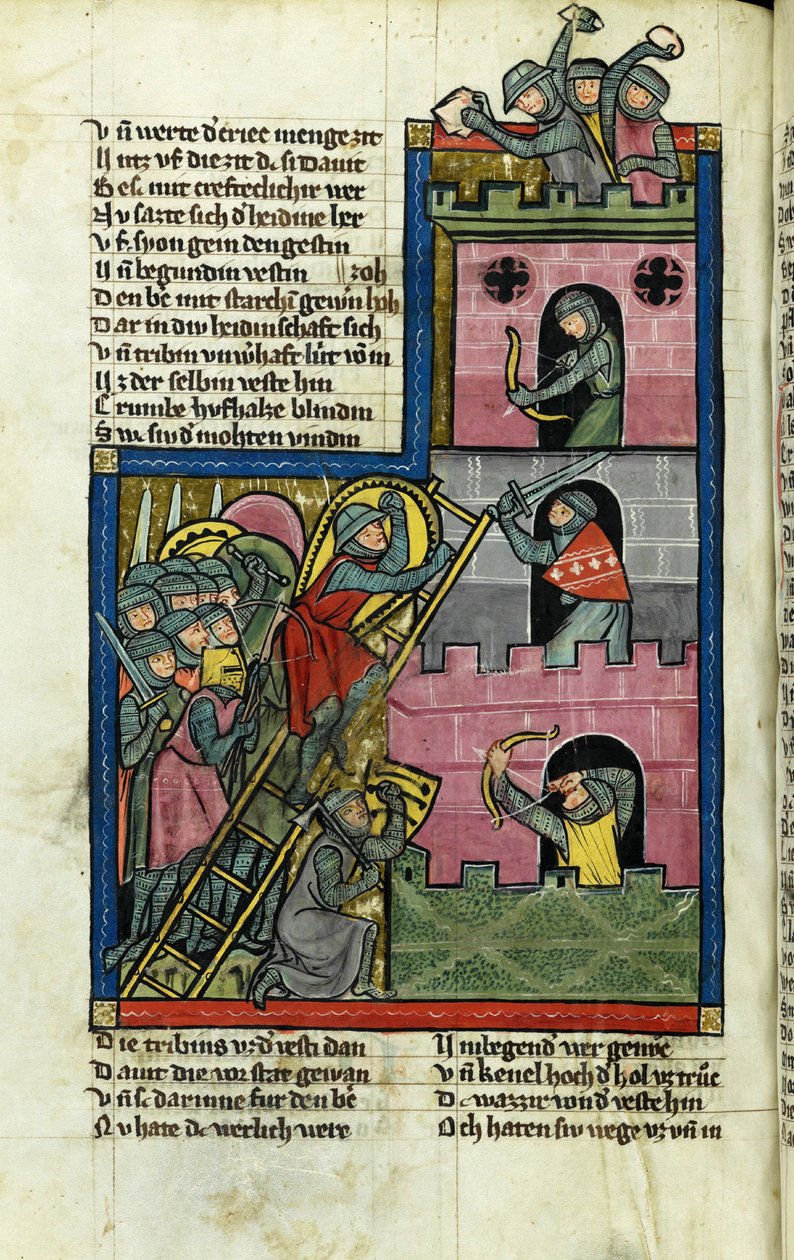 Vn̄ werte d͛ criec menge zit
Untz vf die zit dc si Dauit
Besc mit crefteclichir wer
Nv sazte sich d͛ heidine her
Vf syon gein den gestin
Un̄ begundin vestin // zoh
Den b͛c mit starchē gew͛n hoh
Dar in div heidinschaft sich
Vn̄ tribin vnw͛haft lv̂t von in
Uz der selbin veste hin
Crumbe hvfhalze blindin
Swc siv d͛ mohten vindin
Die tribins vz d͛ vesti dan
Dauit die vorstat gewan
Vn̄ sc darinne fur den b͛c
Nv hatc dc werlich werc
Umbegend͛ wer genůc
Vn̄ kenel hoch d͛ hol vz trůc
Dc wazzir von d͛ veste hin
Och haten siv wege vz vn̄ in